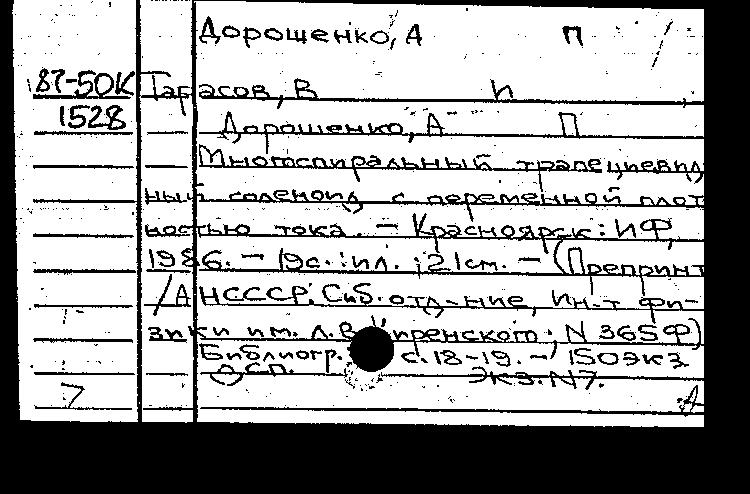 Дорошенко, А П
87-50К Тарасов, В И
1528 Дорошенко, А П
Многоспиральный трапециевид
ный соленоид с переменной плот
ностью тока. – Красноярск: ИФ,
1986. – 19с.: ил. ; 21см. – (Препринт
/АНСССР. Сиб. отд-ние, Ин-т фи-
зики им. Л.В. Киренского; N 365Ф)
Библиогр. с. 18-19. – 150экз
Экз. N7.